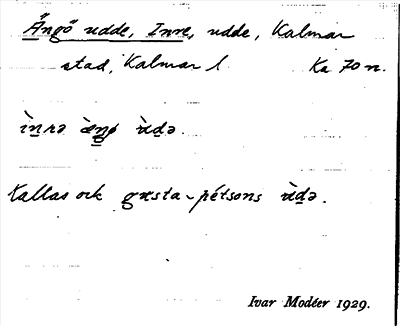 Ängö udde, Inre, udde, Kalmar
stad, Kalmar l. Ka 70 n.
ìn̲rə æ̀n̲gø ùd̲ə.
Kallas ock gusta-pétsons ùd̲ə.
Ivar Modéer 1929.